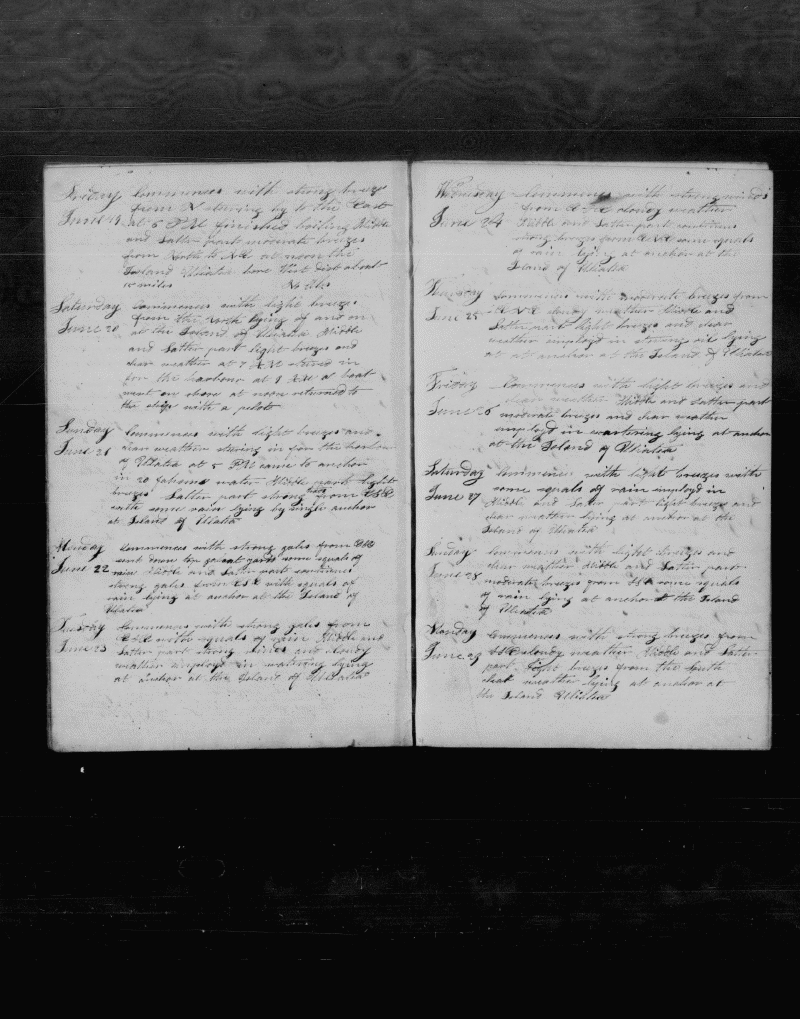 Friday Commences with strong breez
June 19 from N steering by to the East
at 5 PM finished boiling Middle
and Latter part moderate breezes
from North to NE at noon the
Island Ulitatia bore West dist about
15 miles No Obs
Saturday Commences with light breezes
June 20 from the North lying of and on
at the Island of Ulitatia Middle
and Latter part light breezes and
clear weather at 7 AM steered in
for the harbour at 9 AM a boat
went on shore at noon returned to
the ship with a pilot
Sunday Commences with light breezes and
June 21 clear weather steering in for the harbour
of Ulitatia at 5 PM came to anchor
in 20 fathoms water Middle part light
breezes Latter part strong from ESE
with some rain lying by single anchor
at Island of Ulitatia
Monday Commences with strong gales from
June 22 sent down top galant yards some squals of
rain Middle and Latter part continues
strong gales from ESE with squals of
rain lying at anchor at the Island of
Ulitatia
Tuesday Commences with strong gales from
June 23 ESE with squals of rain Middle and
Latter part strong winds and cloudy
weather employd in watering lying
at anchor at the Island of Ulitatia
Wednesday Commences with strong winds
June 24 from cloudy weather
Middle and Latter part continues
strong breezes from some squals
of rain lying at anchor at the
Island of Ulitatia
Thursday Commences with moderate breezes from
June 25 cloudy weather Middle and
Latter part light breezes and clear
weather employd in stowing oil lying
at anchor at the Island of Ulitatia
Friday Commences with light breezes and
June 26 clear weather Middle and Latter part
moderate breezes and clear weather
employd in wartering lying at anchor
at the Island of Ulitatia
Saturday Commences with light breezes with
June 27 some squals of rain employd in
Middle and Latter part light breezes and
clear weather lying at anchor at the
Island of Ulitatia
Sunday Commences with light breezes and
June 28 clear weather Middle and Latter part
moderate breezes from some squals
of rain lying at anchor at the Island
of Ulitatia
Monday Commences with strong breezes from
June 29 cloudy weather Middle and Latter
part light breezes from the South
clear weather lying at anchor at
the Island Ulitatia